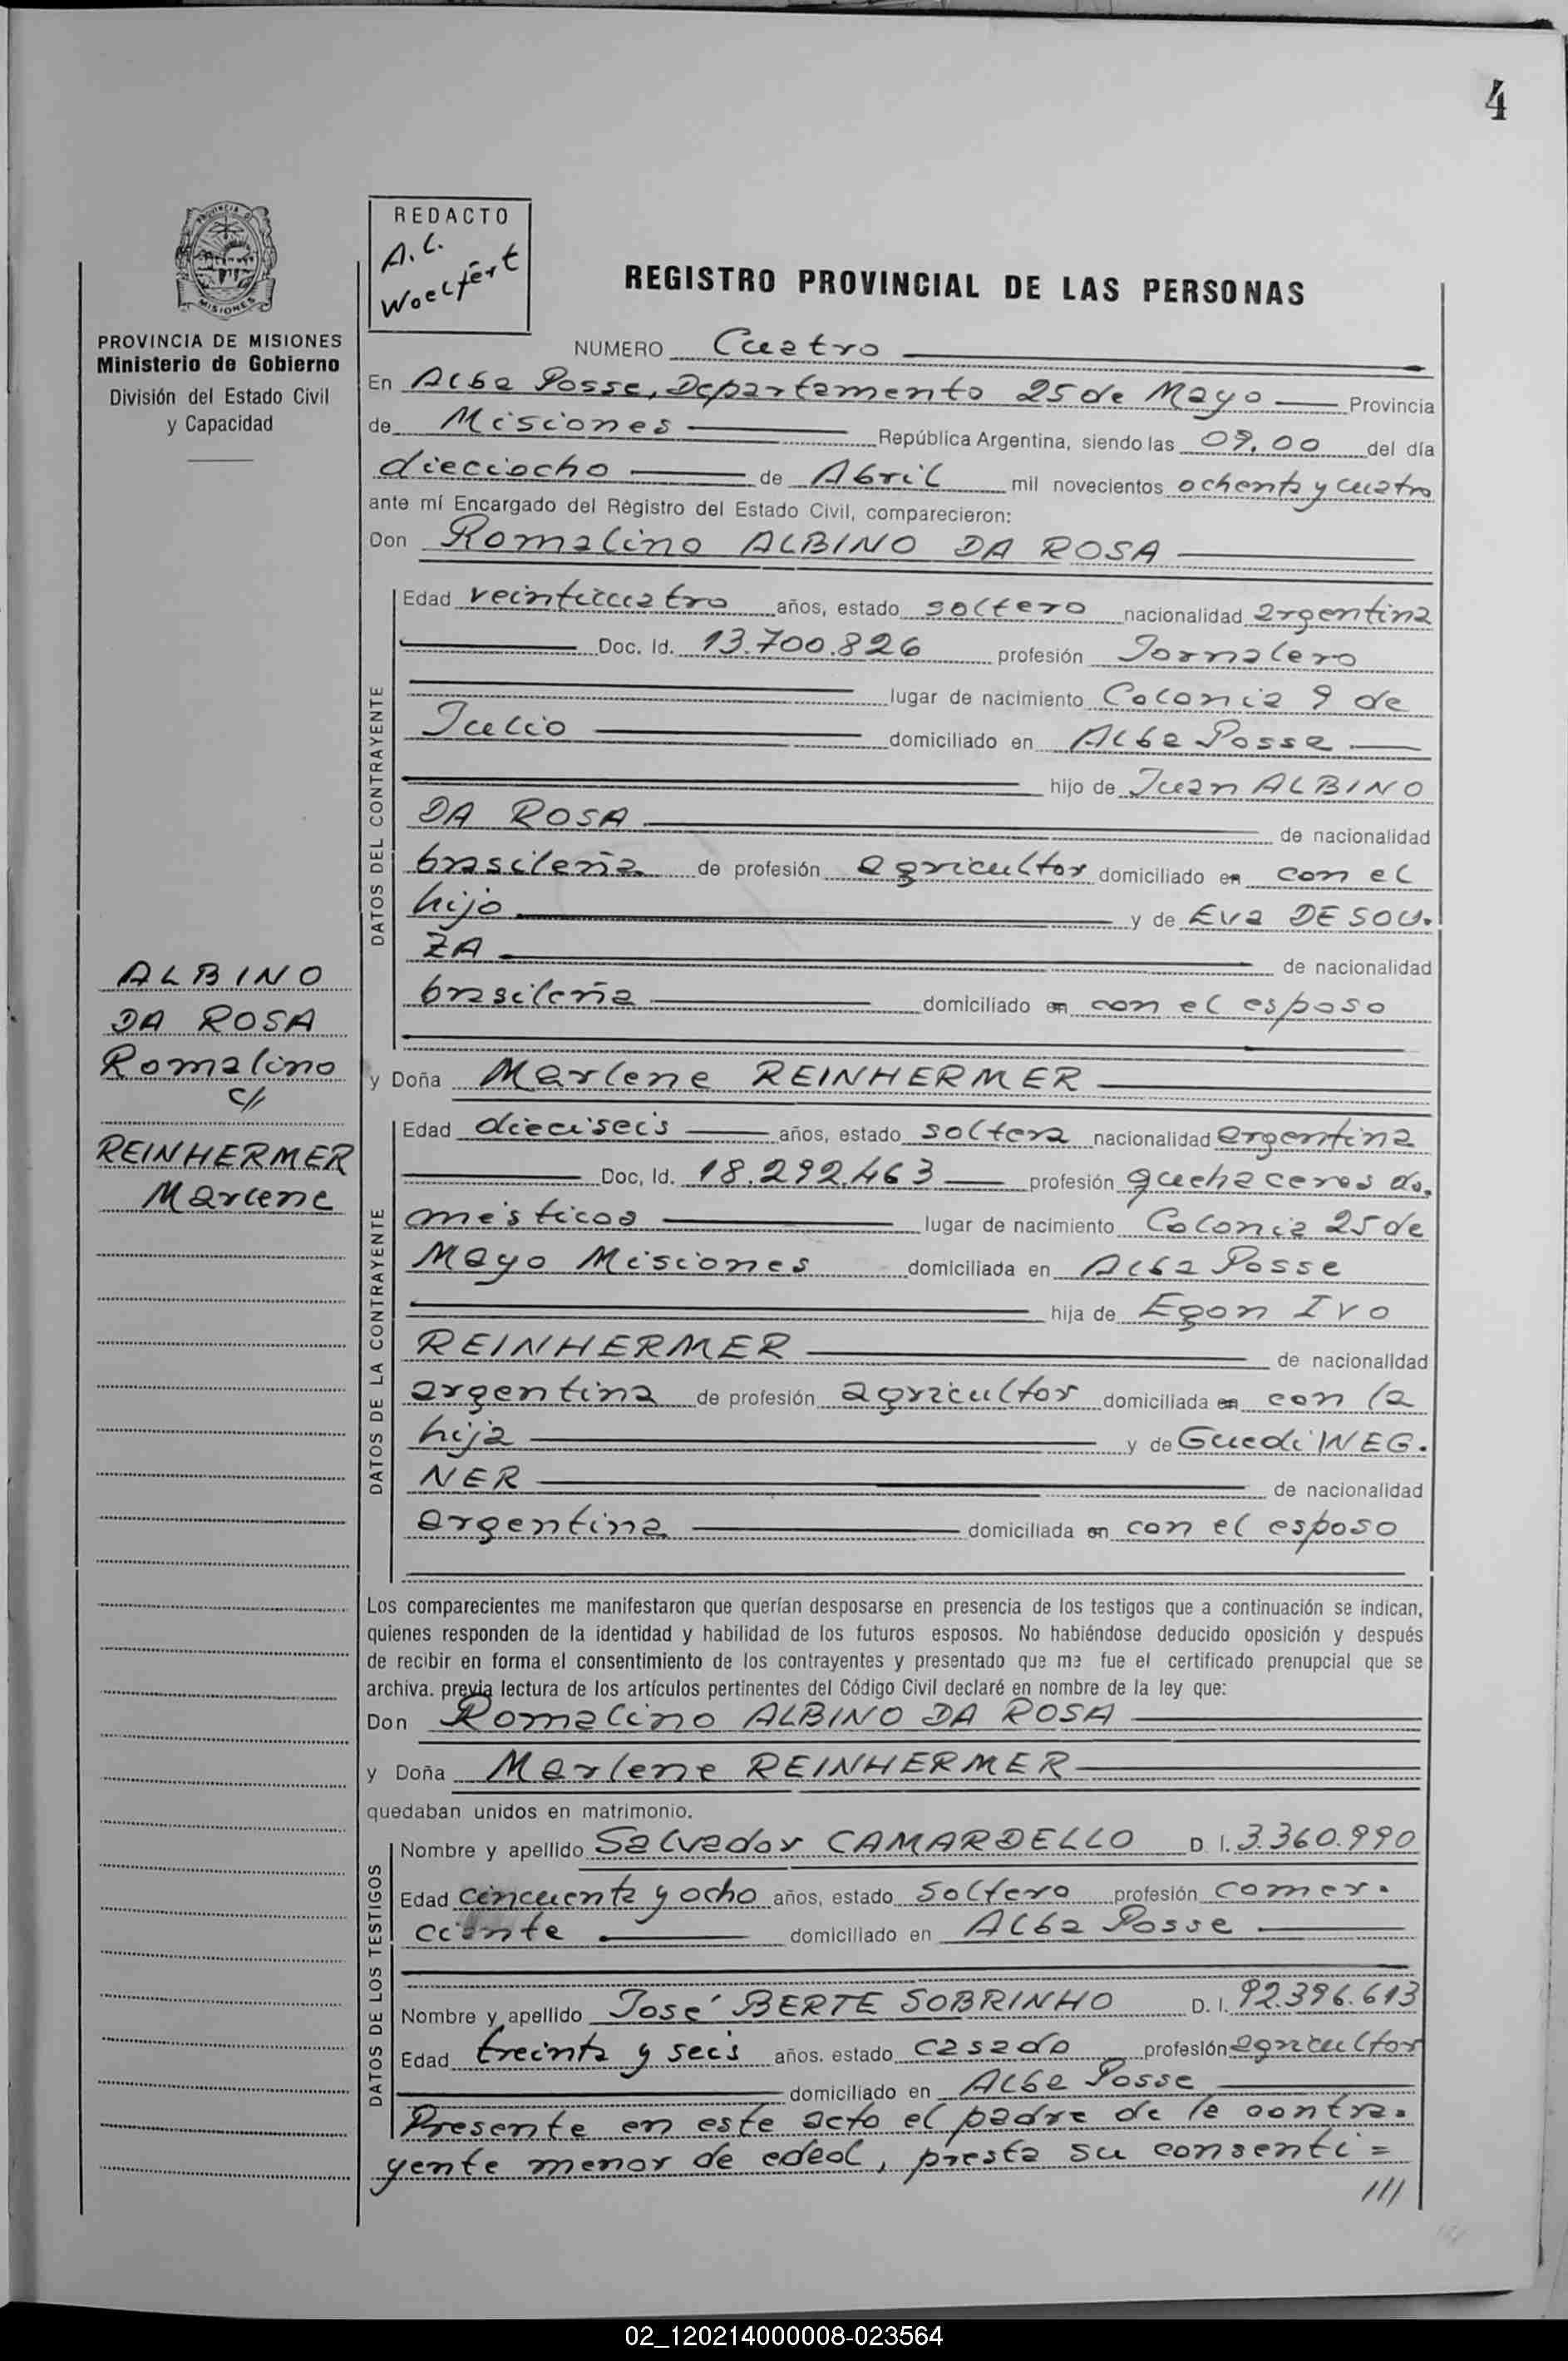 4
PROVINCIA DE MISIONES
Ministerio de Gobierno
División del Estado Civil
y Capacidad
ALBINO
DA ROSA
Romalino
c/
REINHERMER
Marlene
REDACTO
A.C.
Woelfert
REGISTRO PROVINCIAL DE LAS PERSONAS
NUMERO Cuatro
En Alba Posse, Departamento 25 de Mayo Provincia
de Misiones República Argentina, siendo las 09,00 del día
dieciocho de Abril mil novecientos ochenta y cuatro
ante mí Encargado del Registro del Estado Civil, comparecieron:
Don Romalino ALBINO DA ROSA
DATOS DEL CONTRAYENTE
Edad veinticuatro años, estado soltero nacionalidad argentina
Doc. Id. 13.700.826 profesión Jornalero
lugar de nacimiento Colonia 9 de
Julio domiciliado en Alba Posse
hijo de Juan ALBINO
DA ROSA de nacionalidad
brasileña de profesión agricultor domiciliado en con el
hijo y de Eva DE SOU.
ZA de nacionalidad
brasileña domiciliado en con el esposo
y Doña Marlene REINHERMER
DATOS DE LA CONTRAYENTE
Edad dieciseis años, estado soltera nacionalidad argentina
Doc, Id. 18.292.463 profesión quehaceres do.
mésticos lugar de nacimiento Colonia 25 de
Mayo Misiones domiciliada en Alba Posse
hija de Egon Ivo
REINHERMER de nacionalidad
argentina de profesión agricultor domiciliada en con la
hija y de Guedi WEG.
NER de nacionalidad
argentina domiciliada en con el esposo
Los comparecientes me manifestaron que querían desposarse en presencia de los testigos que a continuación se indican,
quienes responden de la identidad y habilidad de los futuros esposos. No habiéndose deducido oposición y después
de recibir en forma el consentimiento de los contrayentes y presentado que me fue el certificado prenupcial que se
archiva. previa lectura de los artículos pertinentes del Código Civil declaré en nombre de la ley que:
Don Romalino ALBINO DA ROSA
y Doña Marlene REINHERMER
quedaban unidos en matrimonio.
DATOS DE LOS TESTIGOS
Nombre y apellido Salvador CAMARDELLO D. I. 3.360.990
Edad cincuenta y ocho años, estado soltero profesión comer.
ciante domiciliado en Alba Posse
Nombre y apellido José BERTE SOBRINHO D. I. 92.396.613
Edad treinta y seis años. estado casado profesión agricultor
domiciliado en Alba Posse
Presente en este acto el padre de la contra.
yente menor de edad, presta su consenti =
///
02_120214000008-023564